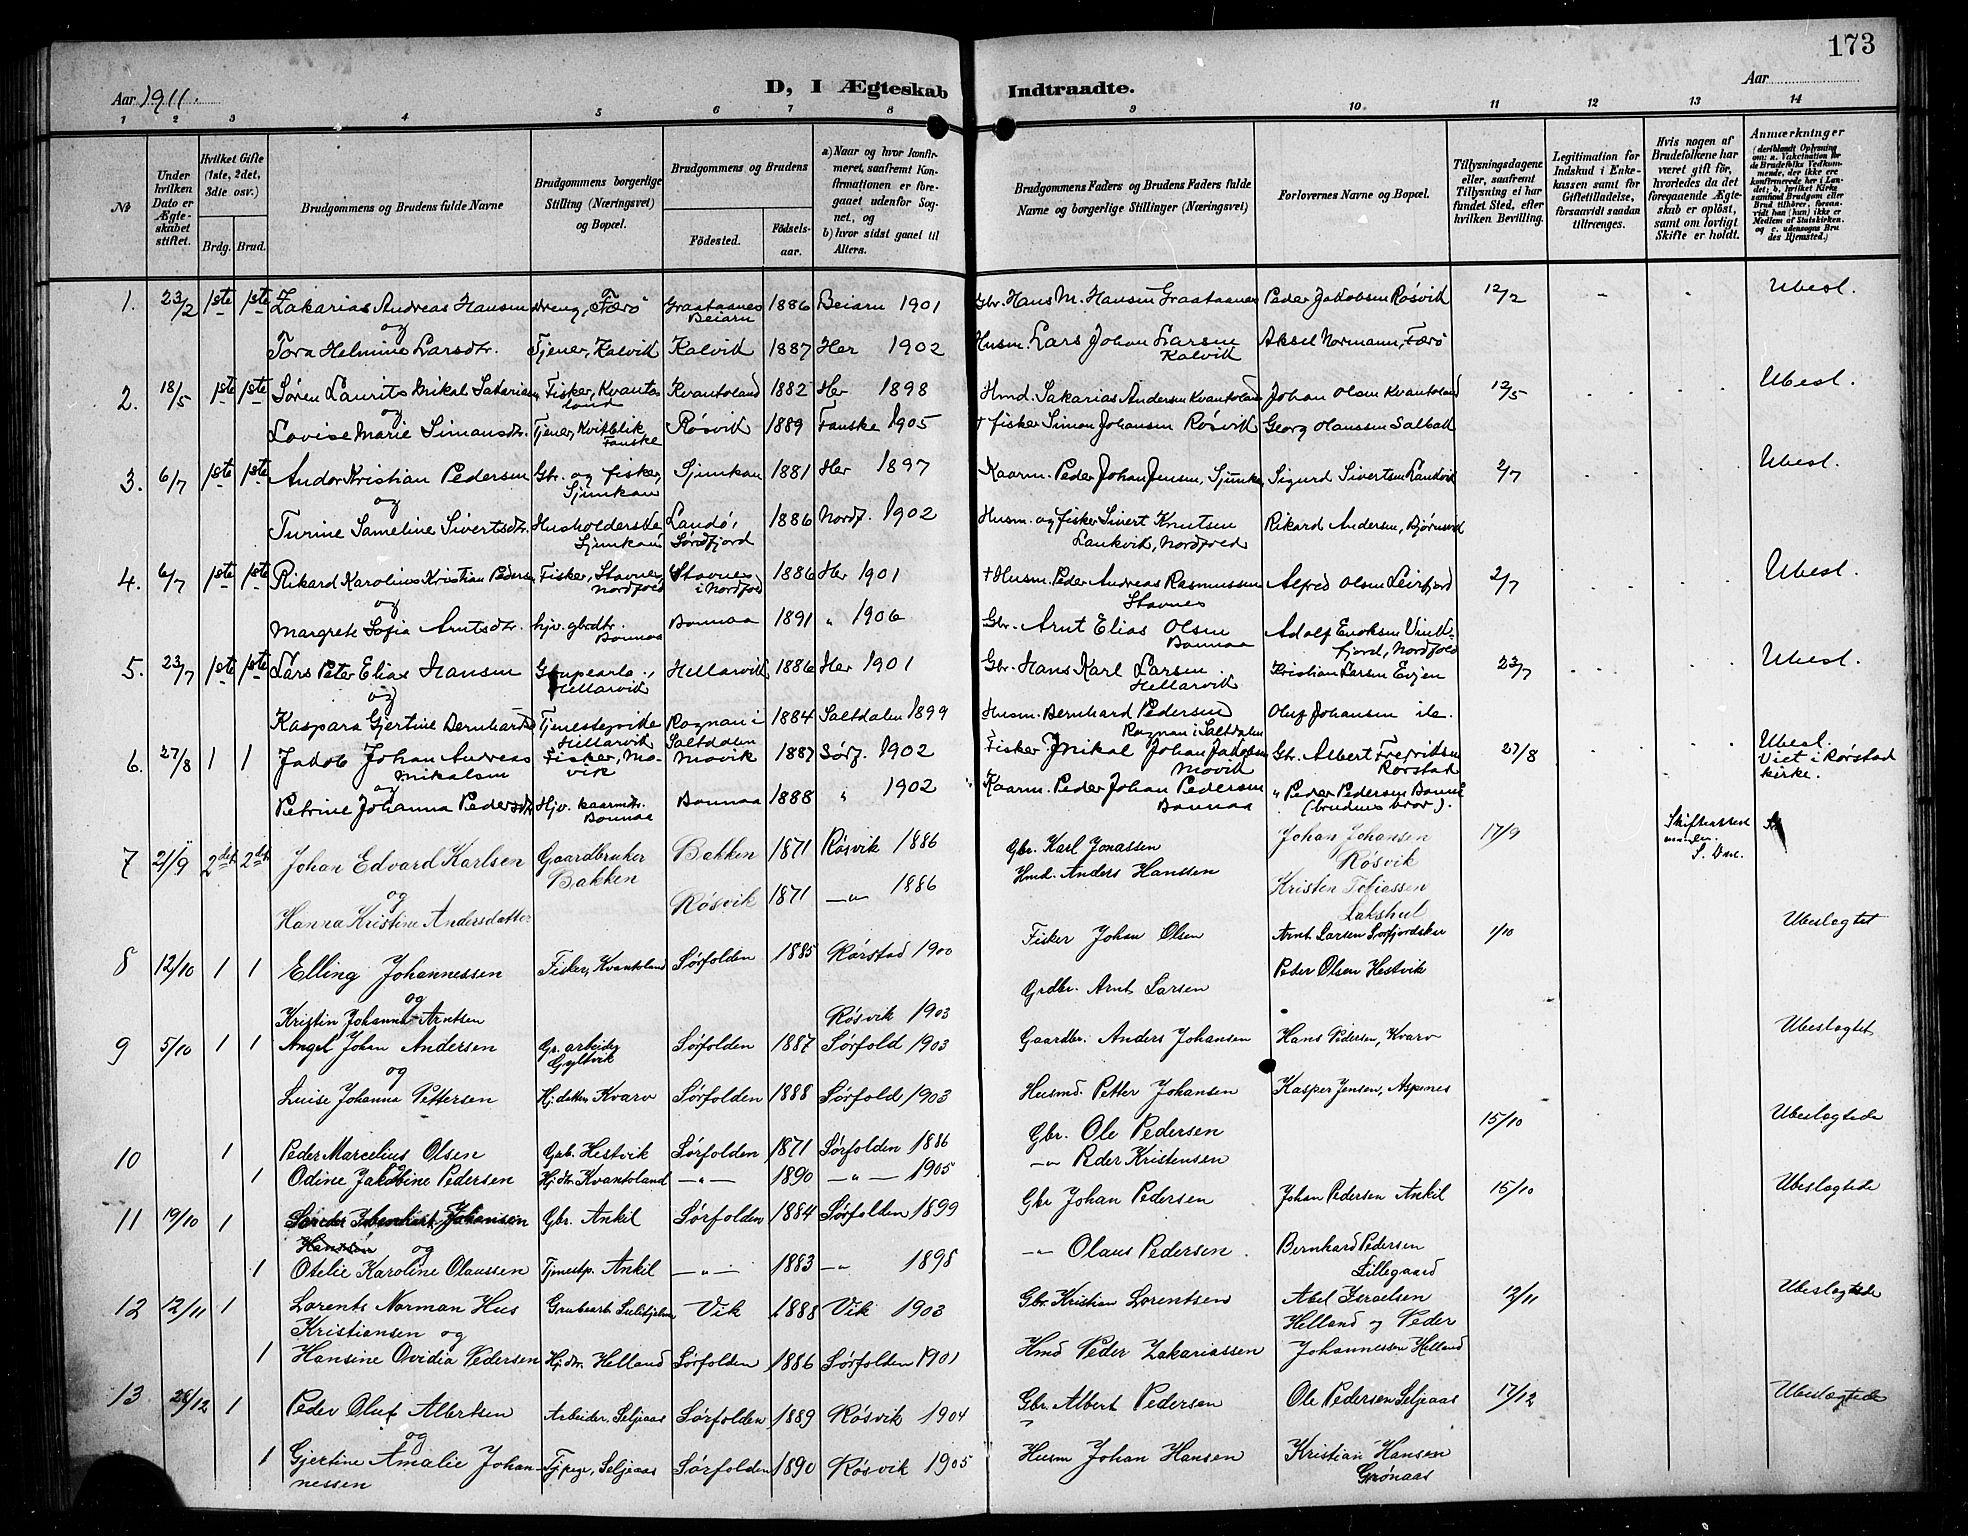 173
Aar 1911.
D, I Ægteskab Indtraadte.
Aar
1 2 3 4 5 6 7 8 9 10 11 12 13 14
№
Under hvilken Dato er Ægteskabet stiftet.
Hvilket Gifte (1ste, 2det, 3die osv.)
Brdg. Brud.
Brudgommens og Brudens fulde Navne
Brudgommens borgerlige Stilling (Næringsvei) og Bopæl.
Brudgommens og Brudens
Fødested. Fødselsaar.
a) Naar og hvor konfirmeret, saafremt Konfirmationen er foregaaet udenfor Sognet, og
b) hvor sidst gaaet til Alters.
Brudgommens Faders og Brudens Faders fulde Navne og borgerlige Stillinger (Næringsvei)
Forlovernes Navne og Bopæl.
Tillysningsdagene eller, saafremt Tillysning ei har fundet Sted, efter hvilken Bevilling.
Legitimation for Indskud i Enkekassen samt for Giftetilladelse, forsaavidt saadan tiltrænges.
Hvis nogen af Brudefolkene har været gift før, hvorledes da det foregaaende Ægteskab er opløst, samt om lovligt Skifte er holdt.
Anmærkninger
(deriblandt Oplysning om: a. Vakcination for de Brudefolks Vedkommende, der ikke ere konfirmerede her i Landet; b. hvilket Kirkesamfund Brudgom eller Brud tilhører, forsaavidt han (hun) ikke er Medlem af Statskirken. og c. udensogns Brudes Hjemsted.)
1. 23/2 1ste 1ste Zakarias Andreas Hansen dreng, Færø Graataanes Beiarn 1886 Beiarn 1901 Gbr. Hans M. Hansen Graataanes Peder Jakobsen Røsvik 12/2 Ubesl.
og
Tora Helmine Larsdtr. Tjener, Kalvik Kalvik 1887 Her 1902 Husm. Lars Johan Larsen Kalvik Aksel Normann, Færø
2. 18/5 1ste 1ste Søren Laurits Mikal Sakariasen Fisker, Kvantoland Kvantoland 1882 Her 1898 Hmd. Sakarias Andersen Kvantoland Johan Olsen Kvantoland 12/5 Ubesl.
og
Lovise Marie Simonsdtr. Tjener, Kvitblik Fauske Røsvik 1889 Fauske 1905 † fisker Simon Johansen Røsvik Georg Olaussen Salbak
3. 6/7 1ste 1ste Andor Kristian Pedersen Gbr. og fisker, Sjunkan Sjunkan 1881 Her 1897 Kaarm. Peder Johan Jensen, Sjunkan Sigurd Sivertsen Landvik 2/7 Ubesl.
og
Turine Sameline Sivertsdtr. Husholderske Sjunkan Landø, Sørdfjord 1886 Nordf. 1902 Husm. og fisker Sivert Knutsen Laukvik, Nordfold Rikard Andersen, Bjørnsvik
4. 6/7 1ste 1ste Rikard Karolius Kristian Pedersen Fisker, Stavnes, Nordfold Stavnes i Nordfold 1886 Her 1901 † Husm. Peder Andreas Rasmussen Stavnes Alfred Olsen Leirfjord 2/7 Ubesl.
og
Margrete Sofia Arntsdtr. hjv. gbrdtr. Bonnaa Bonnaa 1891 " 1906 Gbr. Arnt Elias Olsen Bonnaa Adolf Enoksen Vindfjord, Nordfold
5. 23/7 1ste 1ste Lars Peter Elias Hansen Grupearb., Hellarvik Hellarvik 1886 Her 1901 Gbr. Hans Karl Larsen. Hellarvik Kristian Larsen Evjen 23/7 Ubesl.
og
Kaspara Gjertine Bernhardsd Tjenestepike Hellarvik Rognan i Saltdalen 1884 Saltdalen 1899 Husm. Bernhard Pedersen Rognan i Saltdalen Oluf Johansen ile.
6. 27/8 1 1 Jakob Johan Andreas Mikalsen Fisker, Movik Movik 1887 Sørf. 1902 Fisker Mikal Johan Jakobsen Movik Gbr. Albert Fredriksen Rørstad 27/8 Ubesl. Viet i Rørstad kirke.
og
Petrine Johanna Pedersdtr Hjv. kaarmdtr. Bonnaa Bonnaa 1888 " 1902 Kaarm. Peder Johan Pedersen Bonnaa " Peder Pedersen Bonnaa (brudens bror).
7 21/9 2det 2det Johan Edvard Karlsen Gaardbruker Bakken Bakken 1871 Røsvik 1886 Gbr. Karl Jonassen Johan Johansen Røsvik 17/9
og
Hanna Kristine Andersdatter Røsvik 1871 —"— 1886 Hmd. Anders Hanssen Kristen Tobiassen
8 12/10 1 1 Elling Johannessen Fisker, Kvantoland Sørfolden 1885 Rørstad 1900 Fisker Johan Olsen Arnt Larsen 1/10 Ubeslægtet
og
Kristin Johanna Arntsen Røsvik 1903 Grdbr. Arnt Larsen Peder Olsen Hestvik
9 5/10 1 1 Angel Johan Andersen Gr. arbeider Gyltvik Sørfolden 1887 Sørfold 1903 Gaardbr. Anders Johansen Hans Pedersen, Kvarv Ubeslægtet
og
Luise Johanna Pettersen Hj. datter Kvarv Sørfolden 1888 Sørfold 1903 Husmd. Petter Johansen Kasper Jensen, Aspenes
10 1 Peder Marcelius Olsen Grb. Hestvik Sørfolden 1871 Sørfolden 1886 Gbr. Ole Pedersen 15/10 Ubeslægtede
1 Odine Jakobine Pedersen Hjdtr. Kvantoland —"— 1890 —"— 1905 —"— Peder Kristensen
11 19/10 1 Johansen Gbr. Ankil Sørfolden 1884 Sørfolden 1899 Gbr Johan Pedersen Johan Pedersen Ankil 15/10 Ubeslægtede
Hanssen og
1 Otelie Karoline Olaussen Tjenestp. Ankil —"— 1883 —"— 1898 —"— Olaus Pedersen. Bernhard Pedersen Lillegaard
12 12/11 1 Lorents Norman Hus Kristiansen og Grubearb Sulitjelma Vik 1888 Vik 1903 Gbr. Kristian Lorentsen Abel Israelsen Helland og Peder 12/11 Ubeslægtede
1 Hansine Ovidia Pedersen Hjdtr. Helland Sørfolden 1886 Sørfolden 1901 Hmd Peder Zakariassen Johannessen Helland
13 26/12 1 Peder Oluf Albertsen Arbeider, Seljeaas Sørfolden 1889 Røsvik 1904 Gbr. Albert Pedersen Ole Pedersen Seljeaas 17/12 Ubeslægtede
og
1 Gjertine Amalie Johannessen Tj. pige, Seljeaas Sørfolden 1890 Røsvik 1905 Husm Johan Hansen Kristian Hansen Grønaas